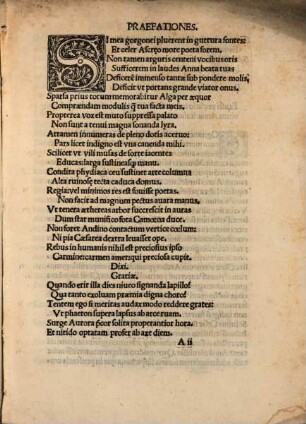 PRAEFATIONES.
SI mea gorgonei pluerent in guttura fontes:
Et celer Ascręo more poeta forem.
Non tamen argutis centeni vocibus oris
Sufficerem in laudes Anna beata tuas
Deficerē immenso tantę sub pondere molis,
Deficit vt portans grande viator onus.
Sparsa prius totum memorabitur Alga per ęquor
Comprendam modulis q̃ tua facta meis.
Propterea vox est muto suppressa palato
Non sunt a tenui magna sonanda lyra.
Attamen innumeras de pleno dotis aceruo:
Pars licet indigno est vna canenda mihi.
Scilicet vt vili musas de sorte iacentes
Educeas larga sustineasq; manu.
Condita phydiaca ceu sustinet arte columna
Alta ruinosę tecta caduca domus.
Regia vel minimos res est fouisse poetas.
Non facit ad magnum pectus auara manus.
Vt tenera ęthereas arbor succrescit in auras
Dum stat munifico fota Camœna duce.
Non foret Andino contractum vertice cœlum:
Ni pia Cæsarea dextra leuasset ope.
Rebus in humanis nihil est preciosius ipso
Carmine: carmen amet qui preciosa cupit.
Dixi.
Gratiæ.
Quando erit illa dies niueo signanda lapillo?
Qua tanto exoluam præmia digna choro?
Tentem ego si meritas audax modo reddere grates:
Vt phaeton supera lapsus ab arce ruam.
Surge Aurora p̃cor solita properantior hora.
Et nitido optatam profer ab axe diem.
A ii